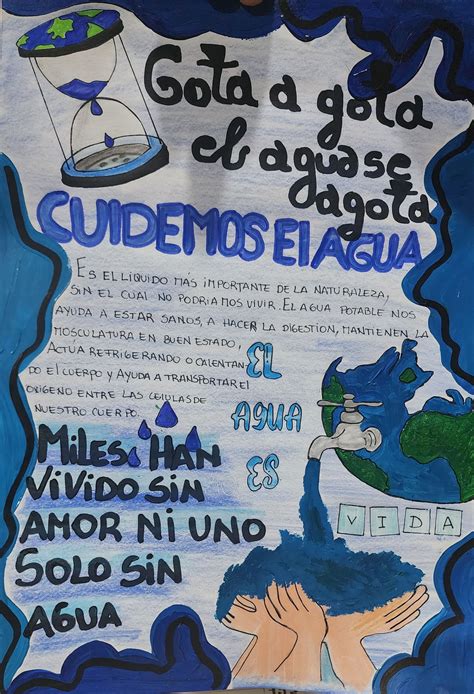 Gota a gota
el agua se
agota
CUIDEMOS El AGUA
ES EL LIQUIDO MÁS IMPORTANTE DE LA NATURALEZA,
SIN EL CUAL NO PODRIAMOS VIVIR. EL AGUA POTABLE NOS
AYUDA A ESTAR SANOS, A HACER LA DIGESTIÓN, MANTIENEN LA
MOSCULATURA EN BUEN ESTADO,
ACTÚA REFRIGERANDO O CALENTAN
DO EL CUERPO Y AYUDA A TRANSPORTAR EL
OXIGENO ENTRE LAS CELULAS DE
NUESTRO CUERPO.
EL
AGUA
ES
VIDA
MILES HAN
VIVIDO SIN
AMOR NI UNO
SOLO SIN
AGUA